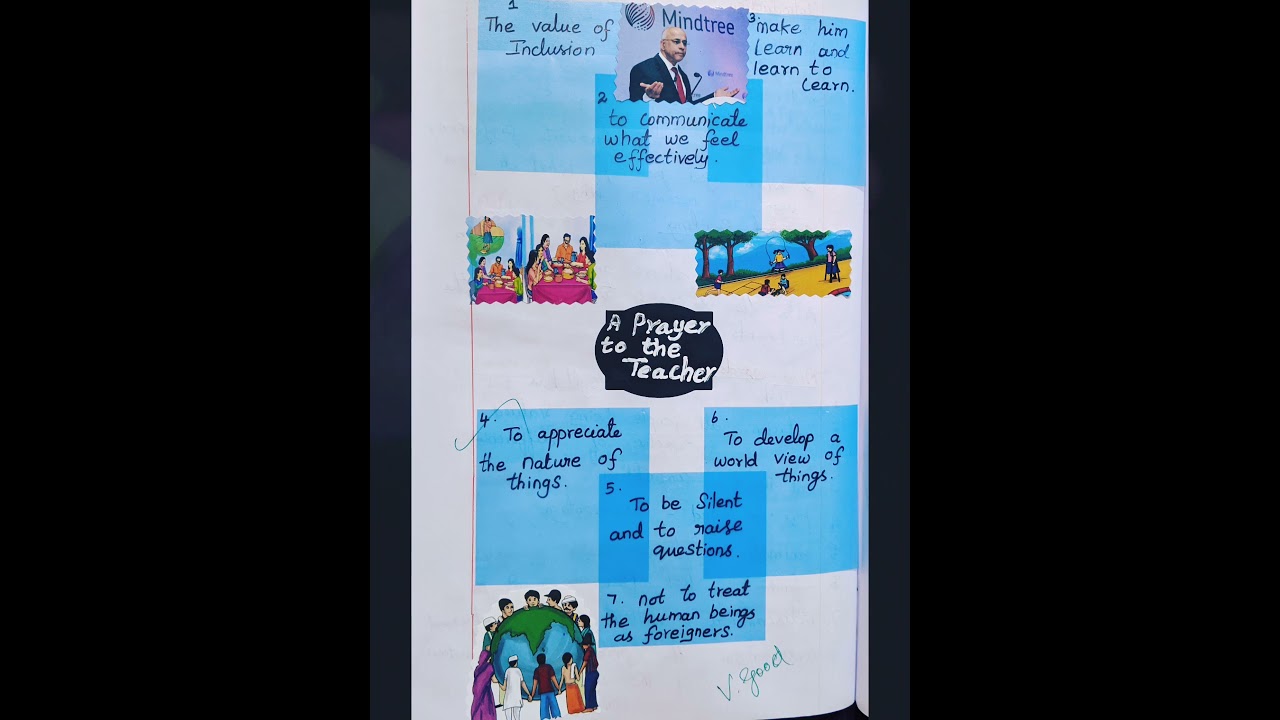 1
The value of
Inclusion
Mindtree
Mindtree
3
make him
Learn and
learn to
Learn.
2
to communicate
what we feel
effectively.
A Prayer
to the
Teacher
4.
To appreciate
the nature of
things.
6.
To develop a
world view of
things.
5.
To be Silent
and to raise
questions.
7. not to treat
the human beings
as foreigners.
V. Good